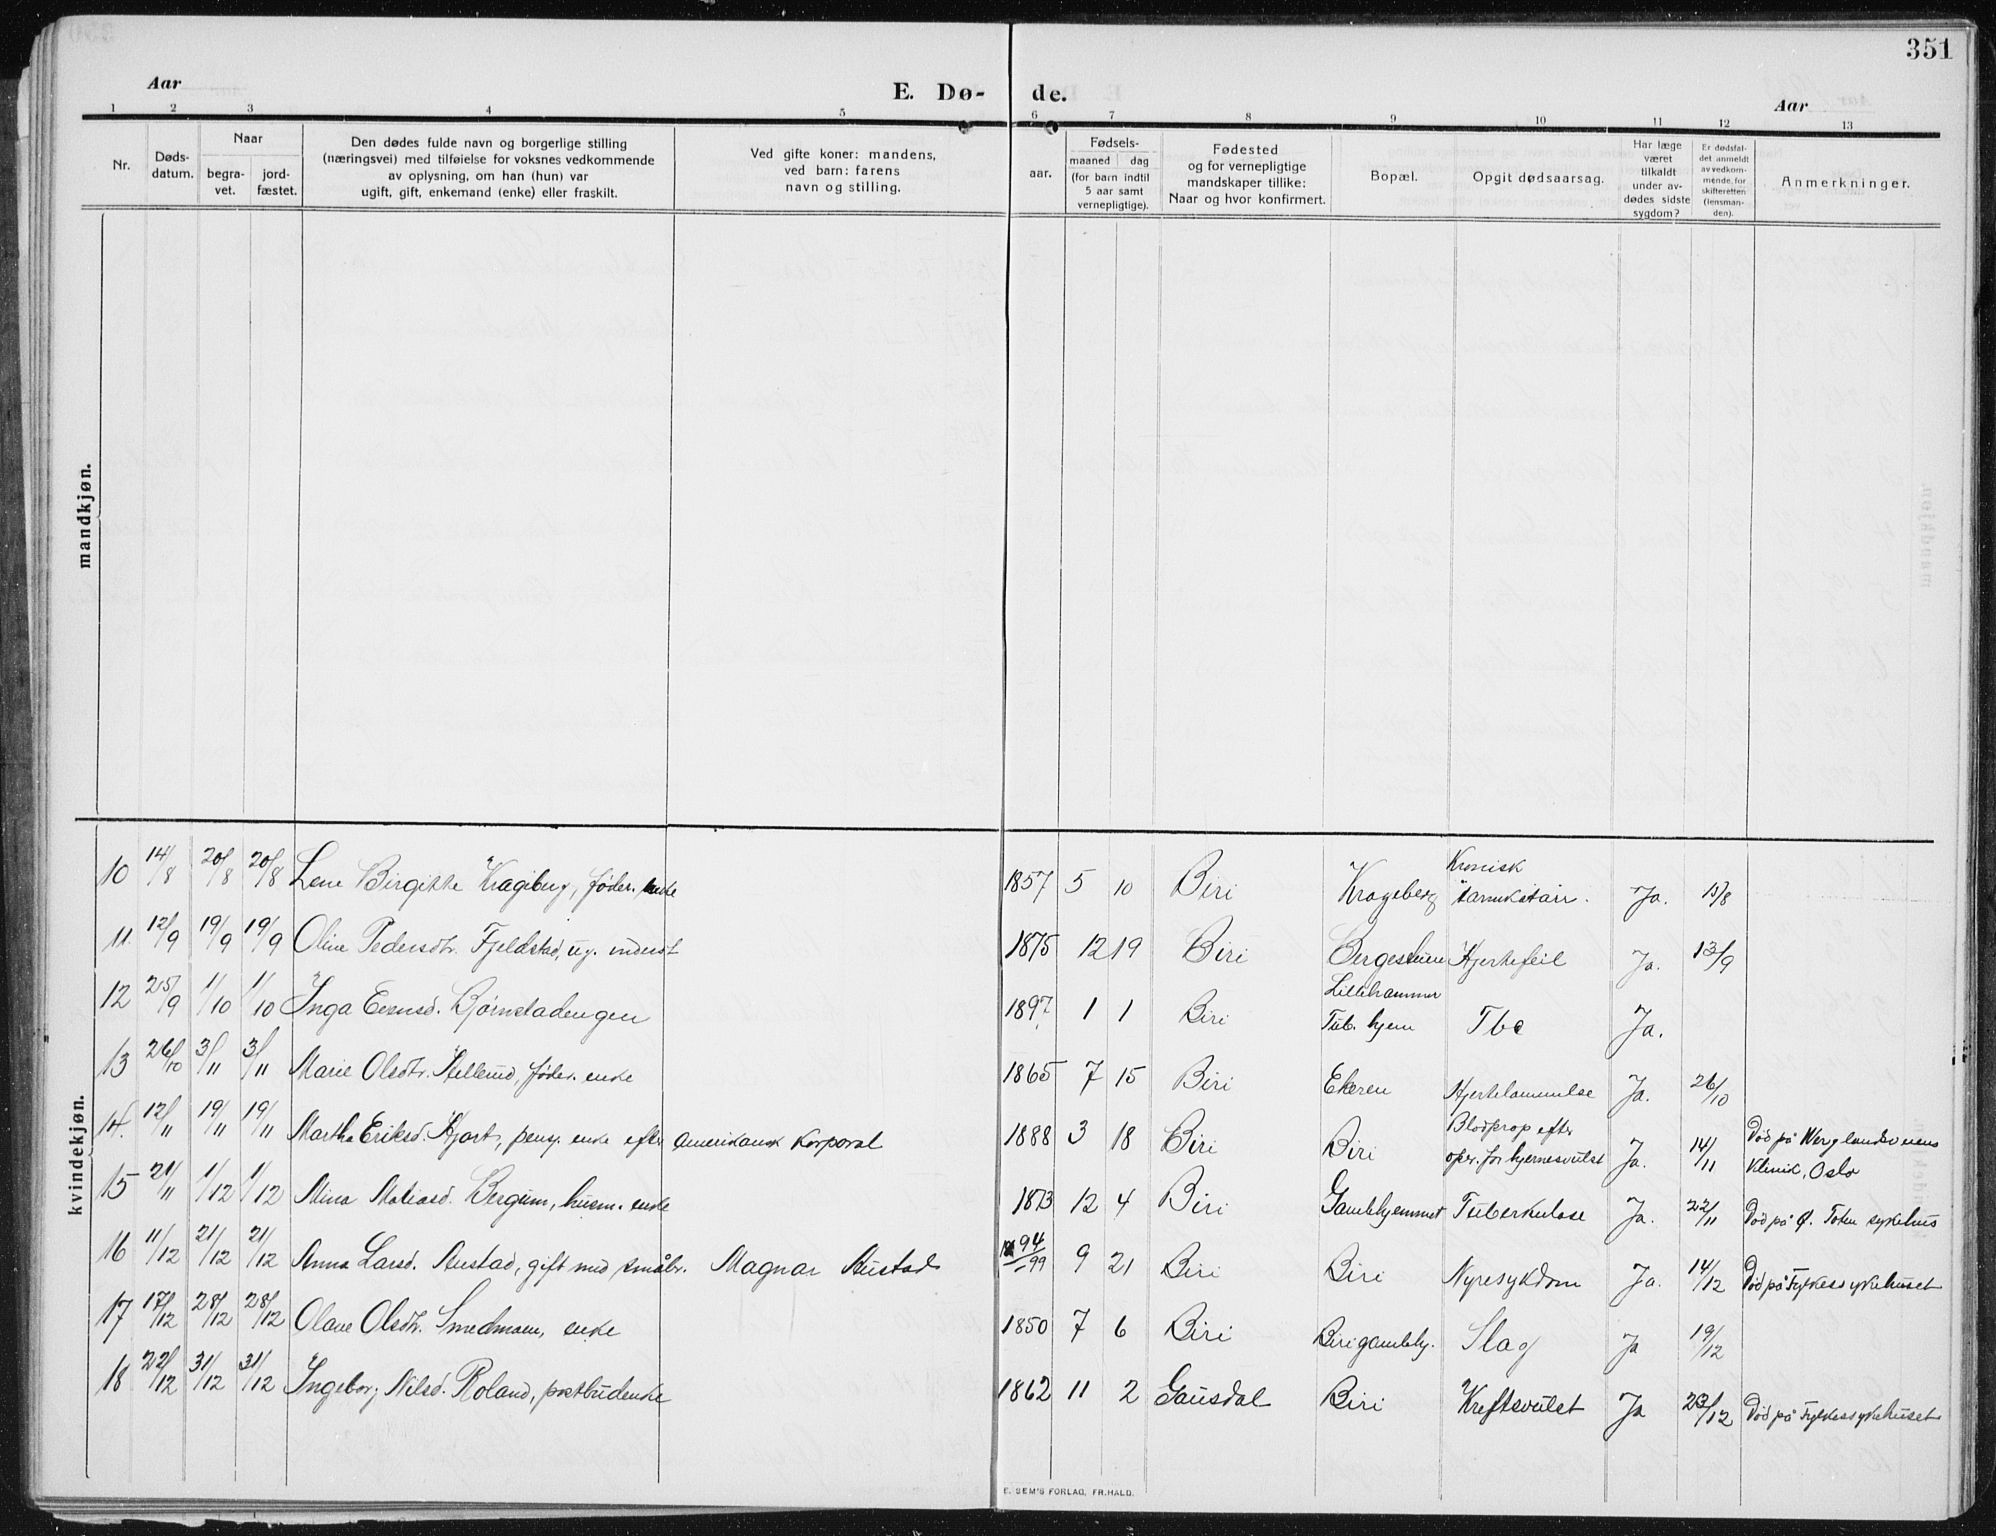 351
Aar
E. Dø- de.
Aar
1 2 3 4 5 6 7 8 9 10 11 12 13
Nr.
Døds-
datum.
Naar
begra-
vet.
jord-
fæstet.
Den dødes fulde navn og borgerlige stilling
(næringsvei) med tilføielse for voksnes vedkommende
av oplysning, om han (hun) var
ugift, gift, enkemand (enke) eller fraskilt.
Ved gifte koner: mandens,
ved barn: farens
navn og stilling.
aar.
Fødsels-
maaned dag
(for barn indtil
5 aar samt
vernepligtige).
Fødested
og for vernepligtige
mandskaper tillike:
Naar og hvor konfirmert.
Bopæl.
Opgit dødsaarsag.
Har læge
været
tilkaldt
under av-
dødes sidste
sygdom?
Er dødsfal-
det anmeldt
av vedkom-
mende, for
skifteretten
(lensman-
den).
Anmerkninger.
mandkjøn.
kvindekjøn.
10 14/8 20/8 20/8 Lene Birgitte Krageberg, føder. enke 1857 5 10 Biri Krageberg Kronisk tarmkatarr. Ja. 15/8
11 12/9 19/9 19/9 Oline Pedersdtr. Fjeldstad, ug. inderst 1875 12 19 Biri Hjertefeil Ja. 13/9
12 25/9 1/10 1/10 Inga Bjørnstadengen 1897 1 1 Biri Lillehammer Tub. hjem Tbc Ja.
13 26/10 3/11 3/11 Marie Olsdtr. føder. enke 1865 7 15 Biri Ekeren Hjertelammelse Ja. 26/10
14. 12/11 19/11 19/11 Martha Eriksd. Hjort, pensj. enke efter amerikansk korporal 1888 3 18 Biri Biri Blodprop efter opr. for hjernesvulst Ja. 14/11 Död på Werglandsveiens Klinik, Oslo
15 21/11 1/12 1/12 Mina Matiasd. Bergum, husm. enke 1873 12 4 Biri Gamlehjemmet Tuberkulose Ja. 22/11 Död på Ø. Toten sykehus
16 11/12 21/12 21/12 Anna Larsd. Austad, gift med småbr. Magnar Austad 94/99 9 21 Biri Biri Nyresykdom Ja. 14/12 Död på Fylkessykehuset
17 17/12 28/12 28/12 Olave Olsdtr. Smedmoen, enke 1850 7 6 Biri Biri gamlehj. Slag Ja 19/12
18 22/12 31/12 31/12 Ingeborg Nilsd. Roland, postbudenke 1862 11 2 Gausdal Biri Kreftsvulst Ja 23/12 Död på Fylkessykehuset
E. SEM'S FORLAG, FR.HALD.